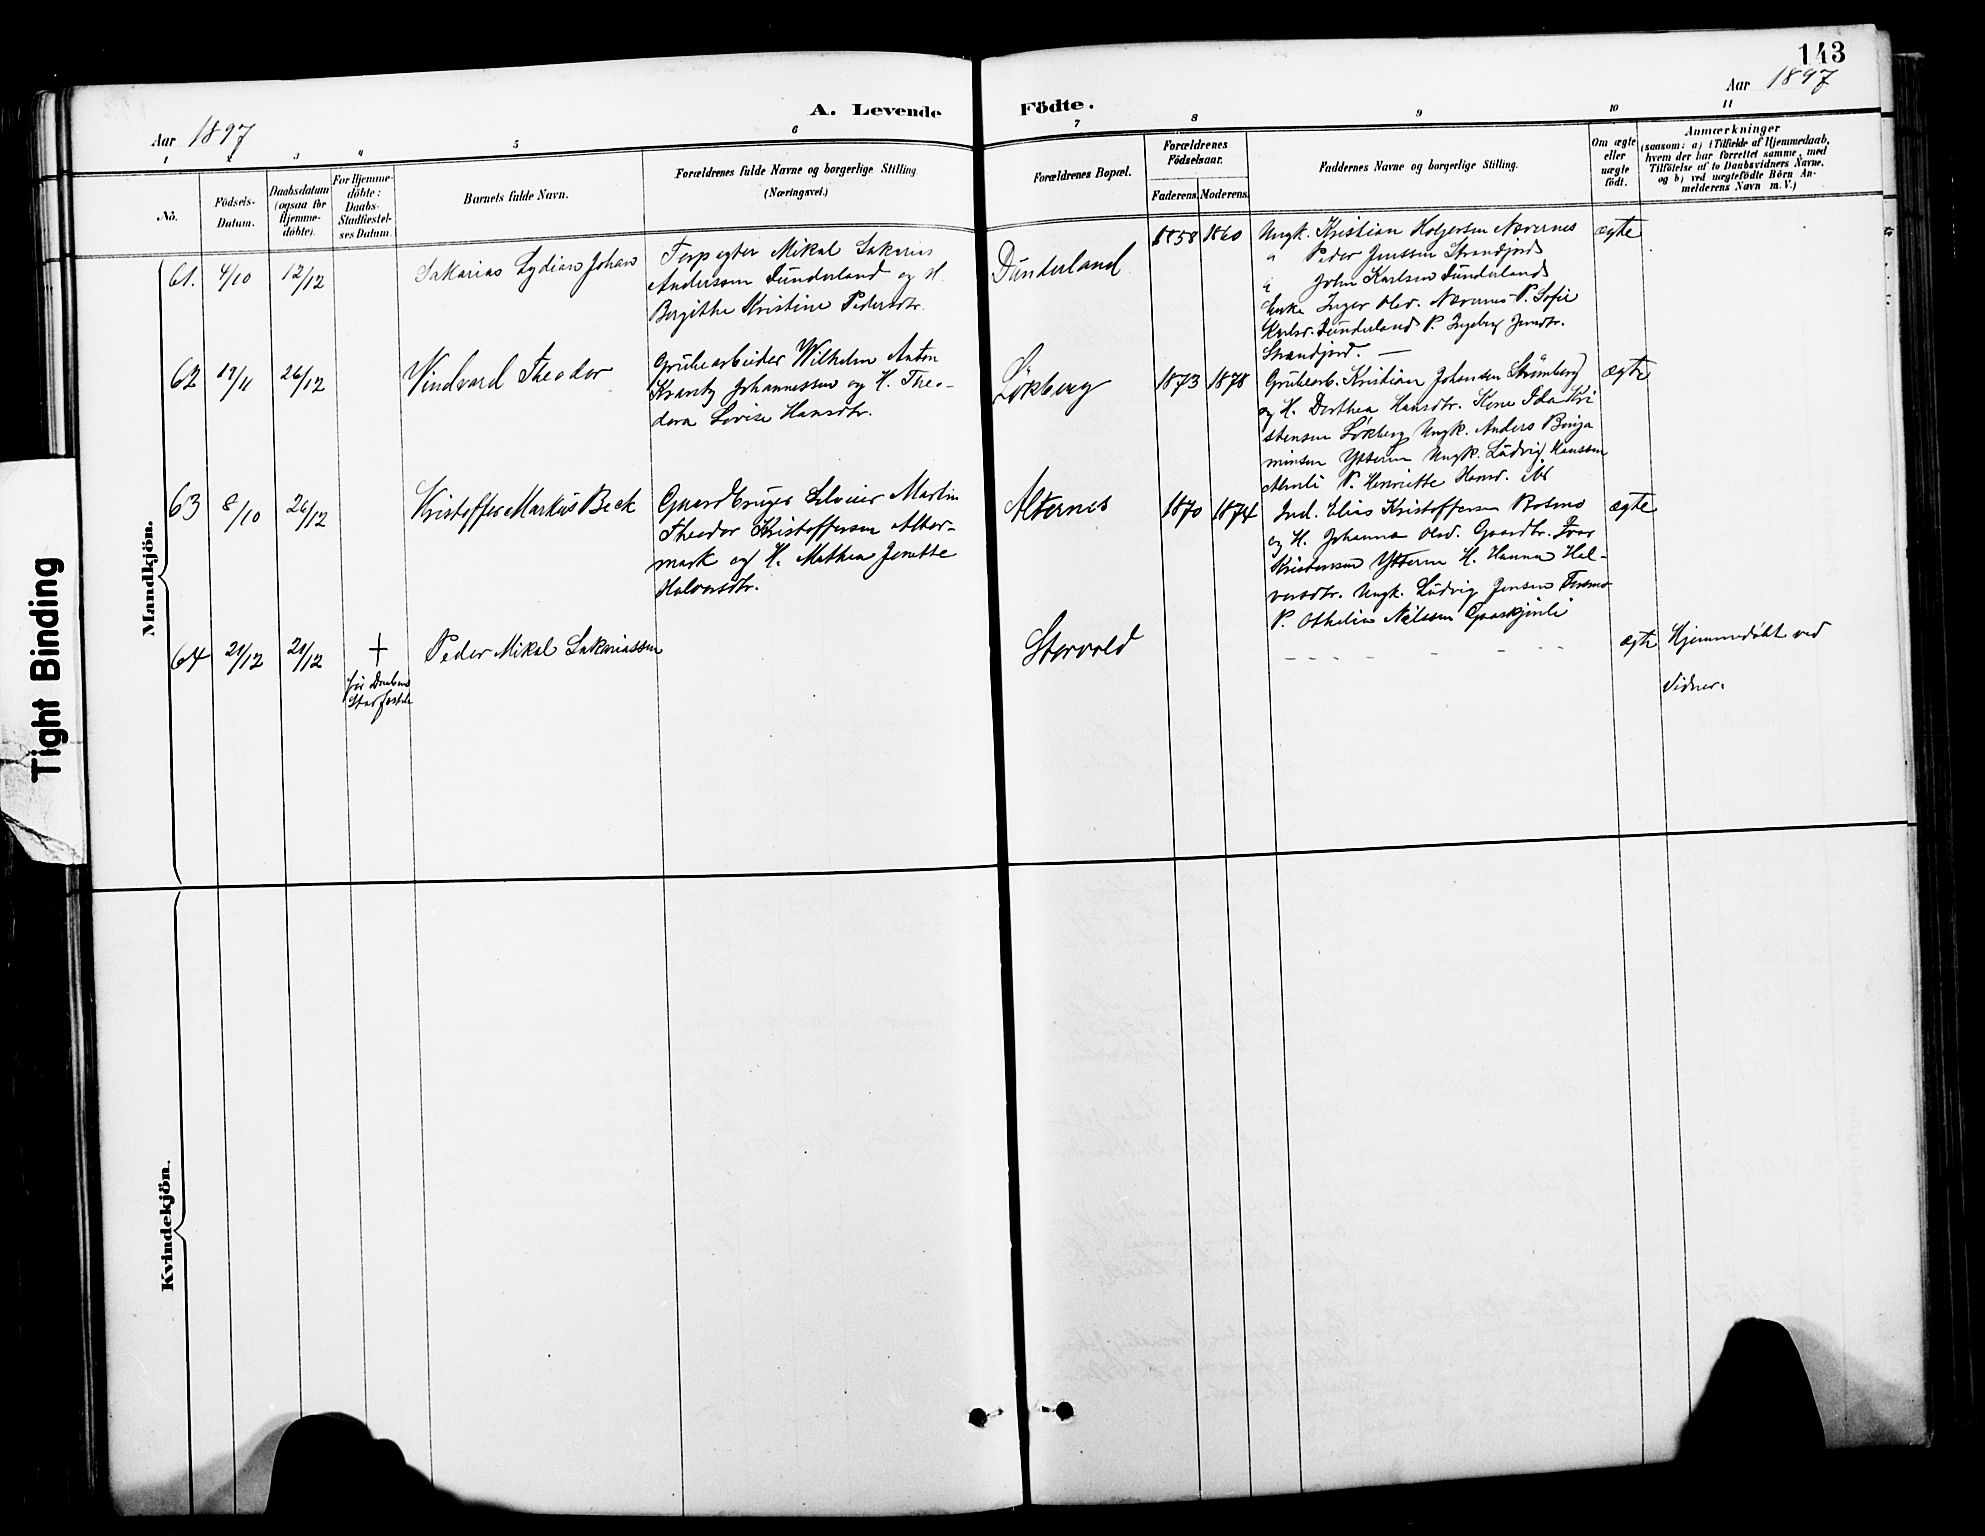 143
Aar 1897
Aar 1897
A. Levende Födte.
1 2 3 4 5 6 7 8 9 10 11
No.
Födsels-
Datum.
Daabsdatum
(ogsaa for
Hjemme-
döbte).
For Hjemme-
döbte:
Daabs-
Stadfæstel-
ses Datum.
Barnets fulde Navn.
Forældrenes fulde Navne og borgerlige Stilling
(Næringsvei.)
Forældrenes Bopæl.
Forældrenes
Födselsaar.
Faderens. Moderens.
Faddernes Navne og borgerlige Stilling.
Om ægte
eller
uægte
födt.
Anmærkninger
(saasom: a) i Tilfælde af Hjemmedaab,
hvem der har forrettet samme, med
Tilföielse af to Daabsvidners Navne,
og b) ved uægtefödte Börn An-
melderens Navn m. V.)
Mandkjön.
61. 4/10 12/12
Sakarias Lydian Johan
Forpagter Mikal Sakarias
Anderssen Dunderland og H.
Bergithe Kristine Pedersdtr.
Dunderland
1858 1860
Ungk. Kristian Holgersen Nævernes
" Peder Jenssen Strandjord
" John Karlsen Dunderland
Enke Inger Olsd. Nævernes P. Sofie
Karlsd. Dunderland P. Ingeborg Jensdtr.
Strandjord. —
ægte
62 19/11 26/12
Vindvard Theodor
Grubearbeider Wilhelm Anton
Krantz Johannessen og H. Theo-
dora Lovise Hansdtr.
Lökberg
1873 1878
Grubearb. Kristian Johansen Strömberg
og H. Dorthea Hansdtr. Kone Ida Kri
stensen Lökberg Ungk. Anders Benja
minsen Ytteren Ungk. Ludvig Hanssen
P. Henriette Hansd. ibd
ægte
63 8/10 26/12
Kristoffer Markus Beck
Gaardbruger Martin
Theodor Kristoffersen Alter-
mark og H. Mathea Jenette
Halvorsdtr.
Alternes
1870 1874
Ind. Elias Kristoffersen Bosmo
og H. Johanna Olsd. Gaardbr. Ivar
Kristensen Ytteren H. Hanna Hal-
vorsdtr. Ungk. Ludvig Jensen
P. Othelie Nilssen
ægte
64 21/12 21/12
+
før Daabens
Stadfæstelse
Peder Mikal Sakariassen
Storvold
– – – – – – – –
ægte
Hjemmedøbt ved
Vidner.
Kvindekjön.
Tight Binding